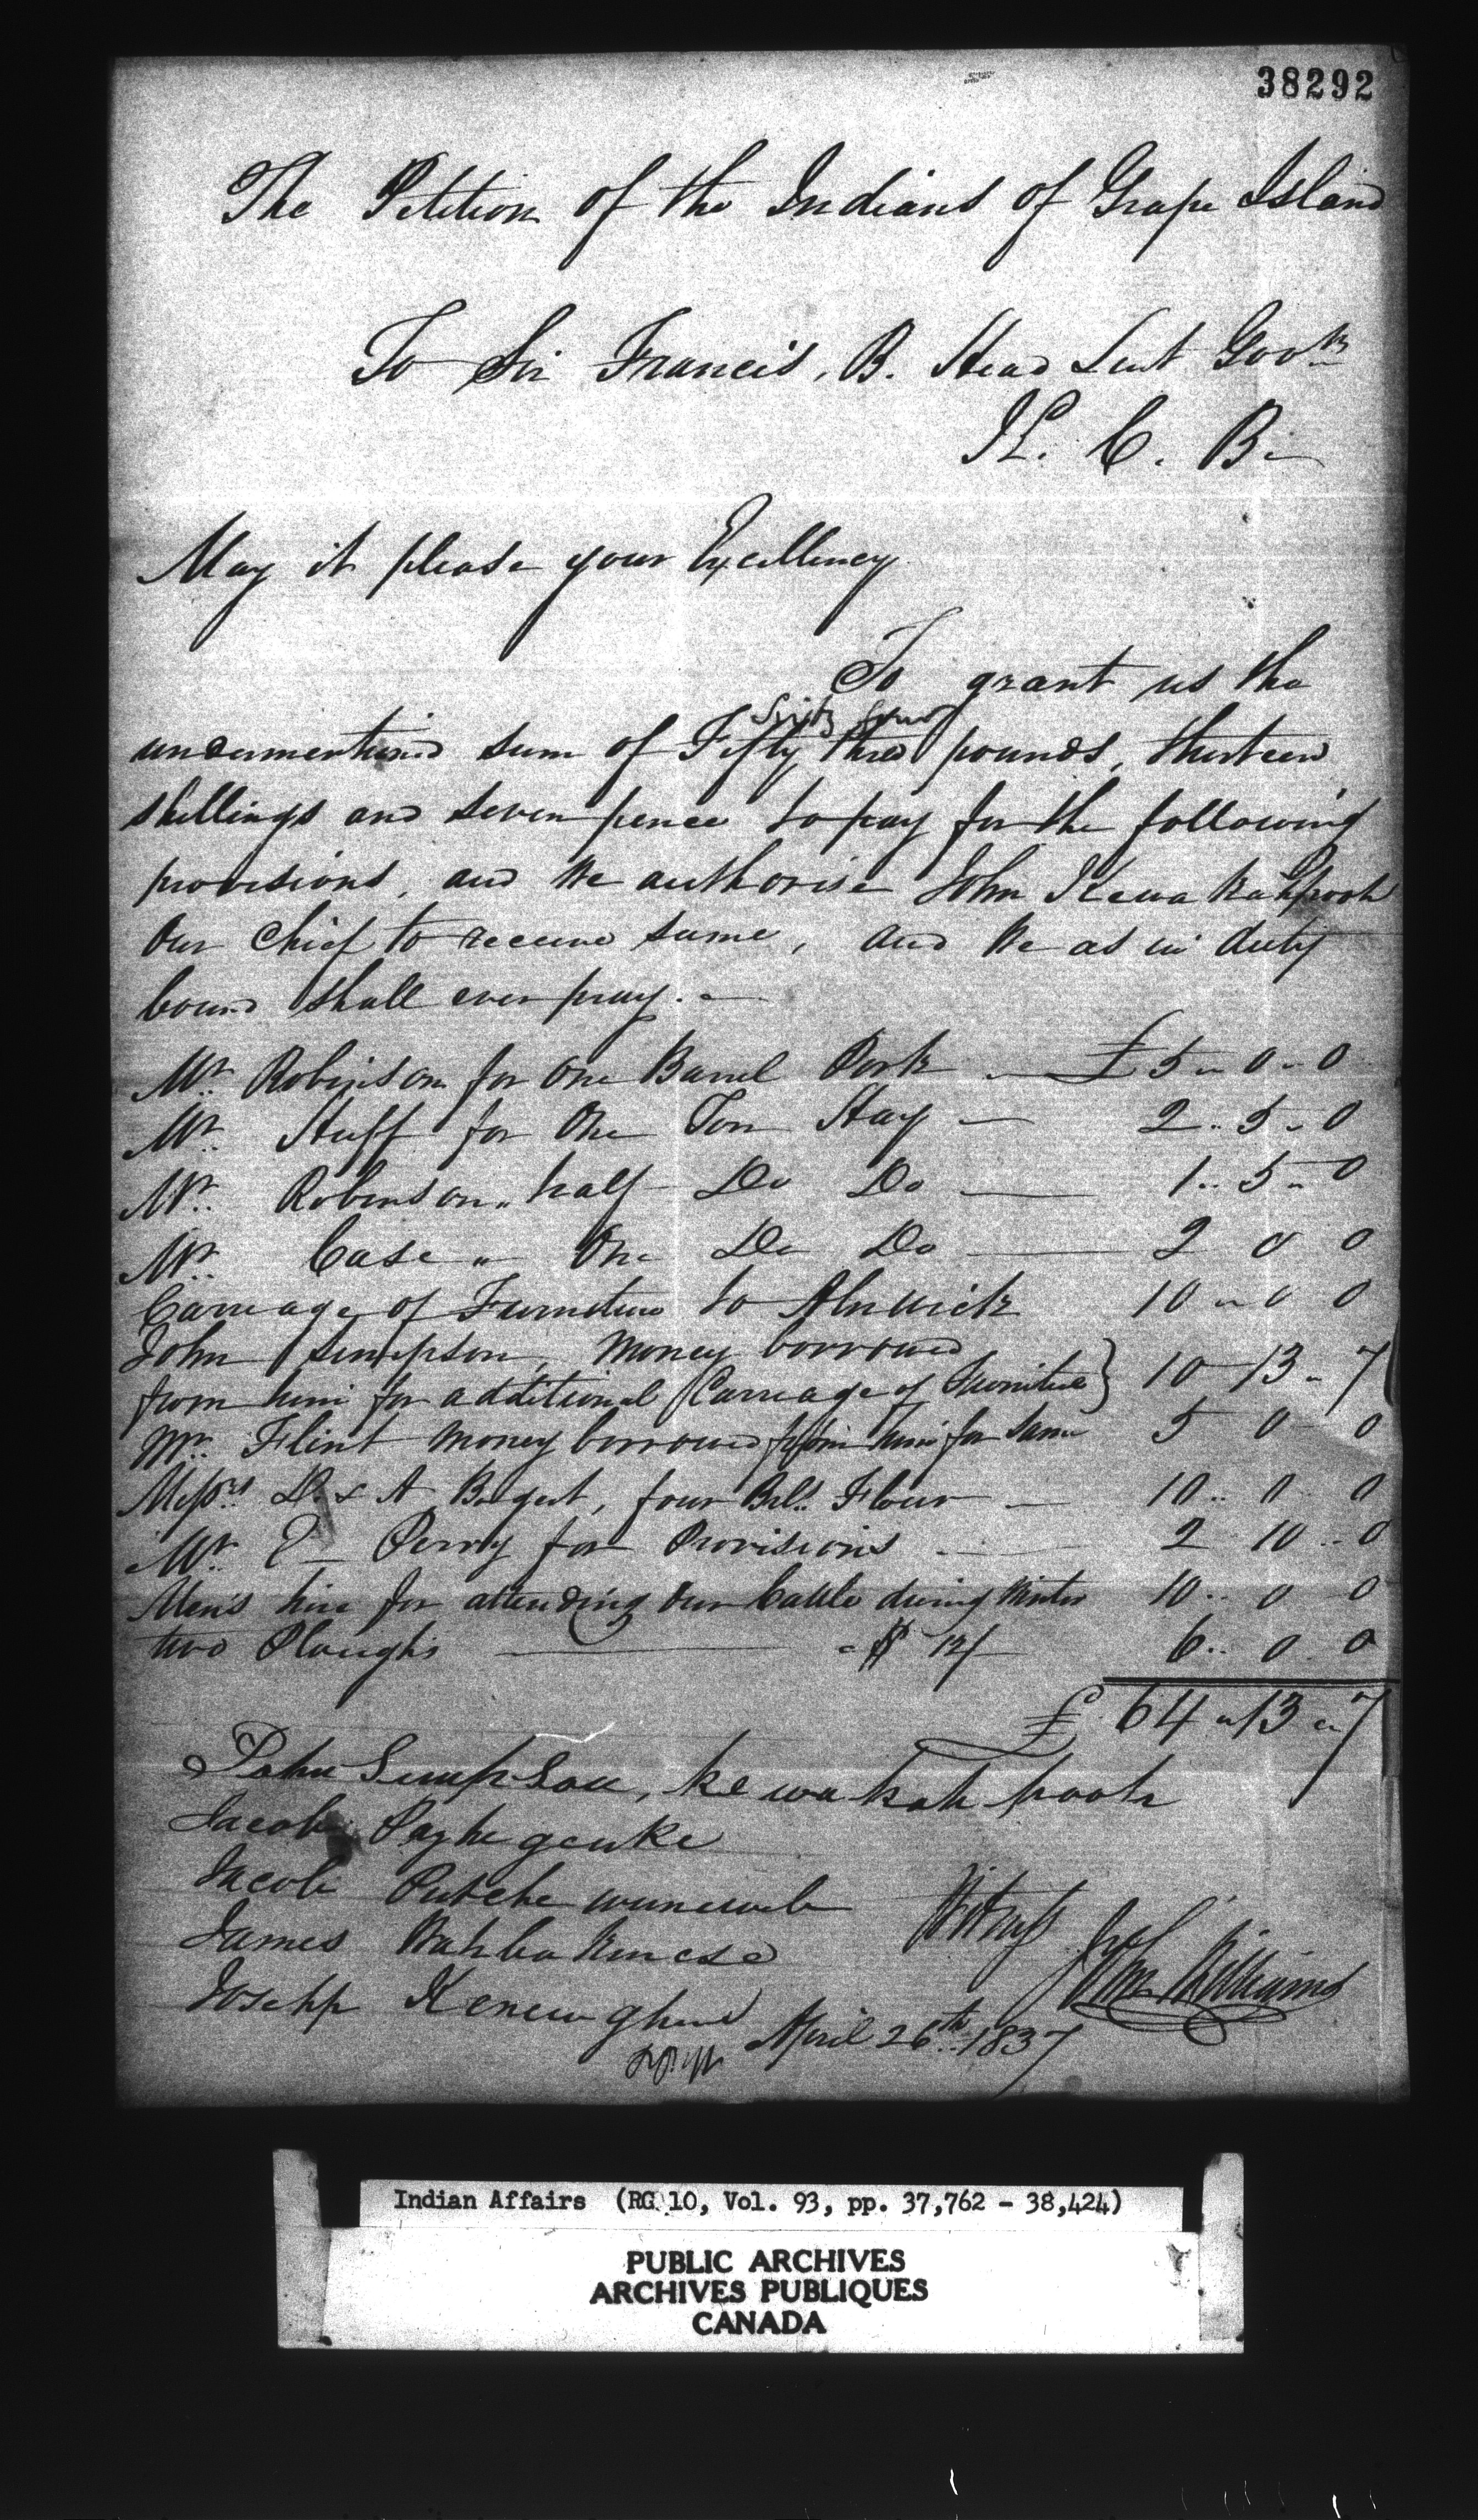 38292
The Petition of the Indians of Grape Island
To Sir Francis, B. Head Leut Govr
K. C. B.
May it please your Excellency
To grant us the
Sixty four
undermentioned sum of Fifty three pounds, thirteen
shillings and seven pence to pay for the following
provisions, and We authorise John Kewa
Our Chief to receive same, and We as in duty
bound shall ever pray. —
Mr. Robinson for One Barrel Pork — £ 5 .. 0 .. 0
Mr. Huff for One Ton Hay — 2 .. 5 .. 0
Mr. Robinson .. half Do Do — 1 .. 5 .. 0
Mr. Case .. One Do Do — 2 0 0
Carriage of Furniture to Alnwick 10 .. 0 0
John Simpson, Money borrowed
from him for additional Carriage of Furniture } 10 – 13 .. 7
Mr. Flint Money borrowed from him for same 5 0 0
Messrs D. & A. four Bls. Flour — 10 .. 0 0
Mr. E Perry for Provisions — 2 10 .. 0
Men's hire for attending Our Cattle during Winter 10 .. 0 0
two Ploughs — $ 12/ 6 .. 0 0
£ 64 .. 13 .. 7
John Simpson, ke wa kah pooh
Jacob
Jacob
James
Joseph
Witness
Wm Williams
April 26th 1837
Indian Affairs (RG 10, Vol. 93, pp. 37,762 - 38,424)
PUBLIC ARCHIVES
ARCHIVES PUBLIQUES
CANADA